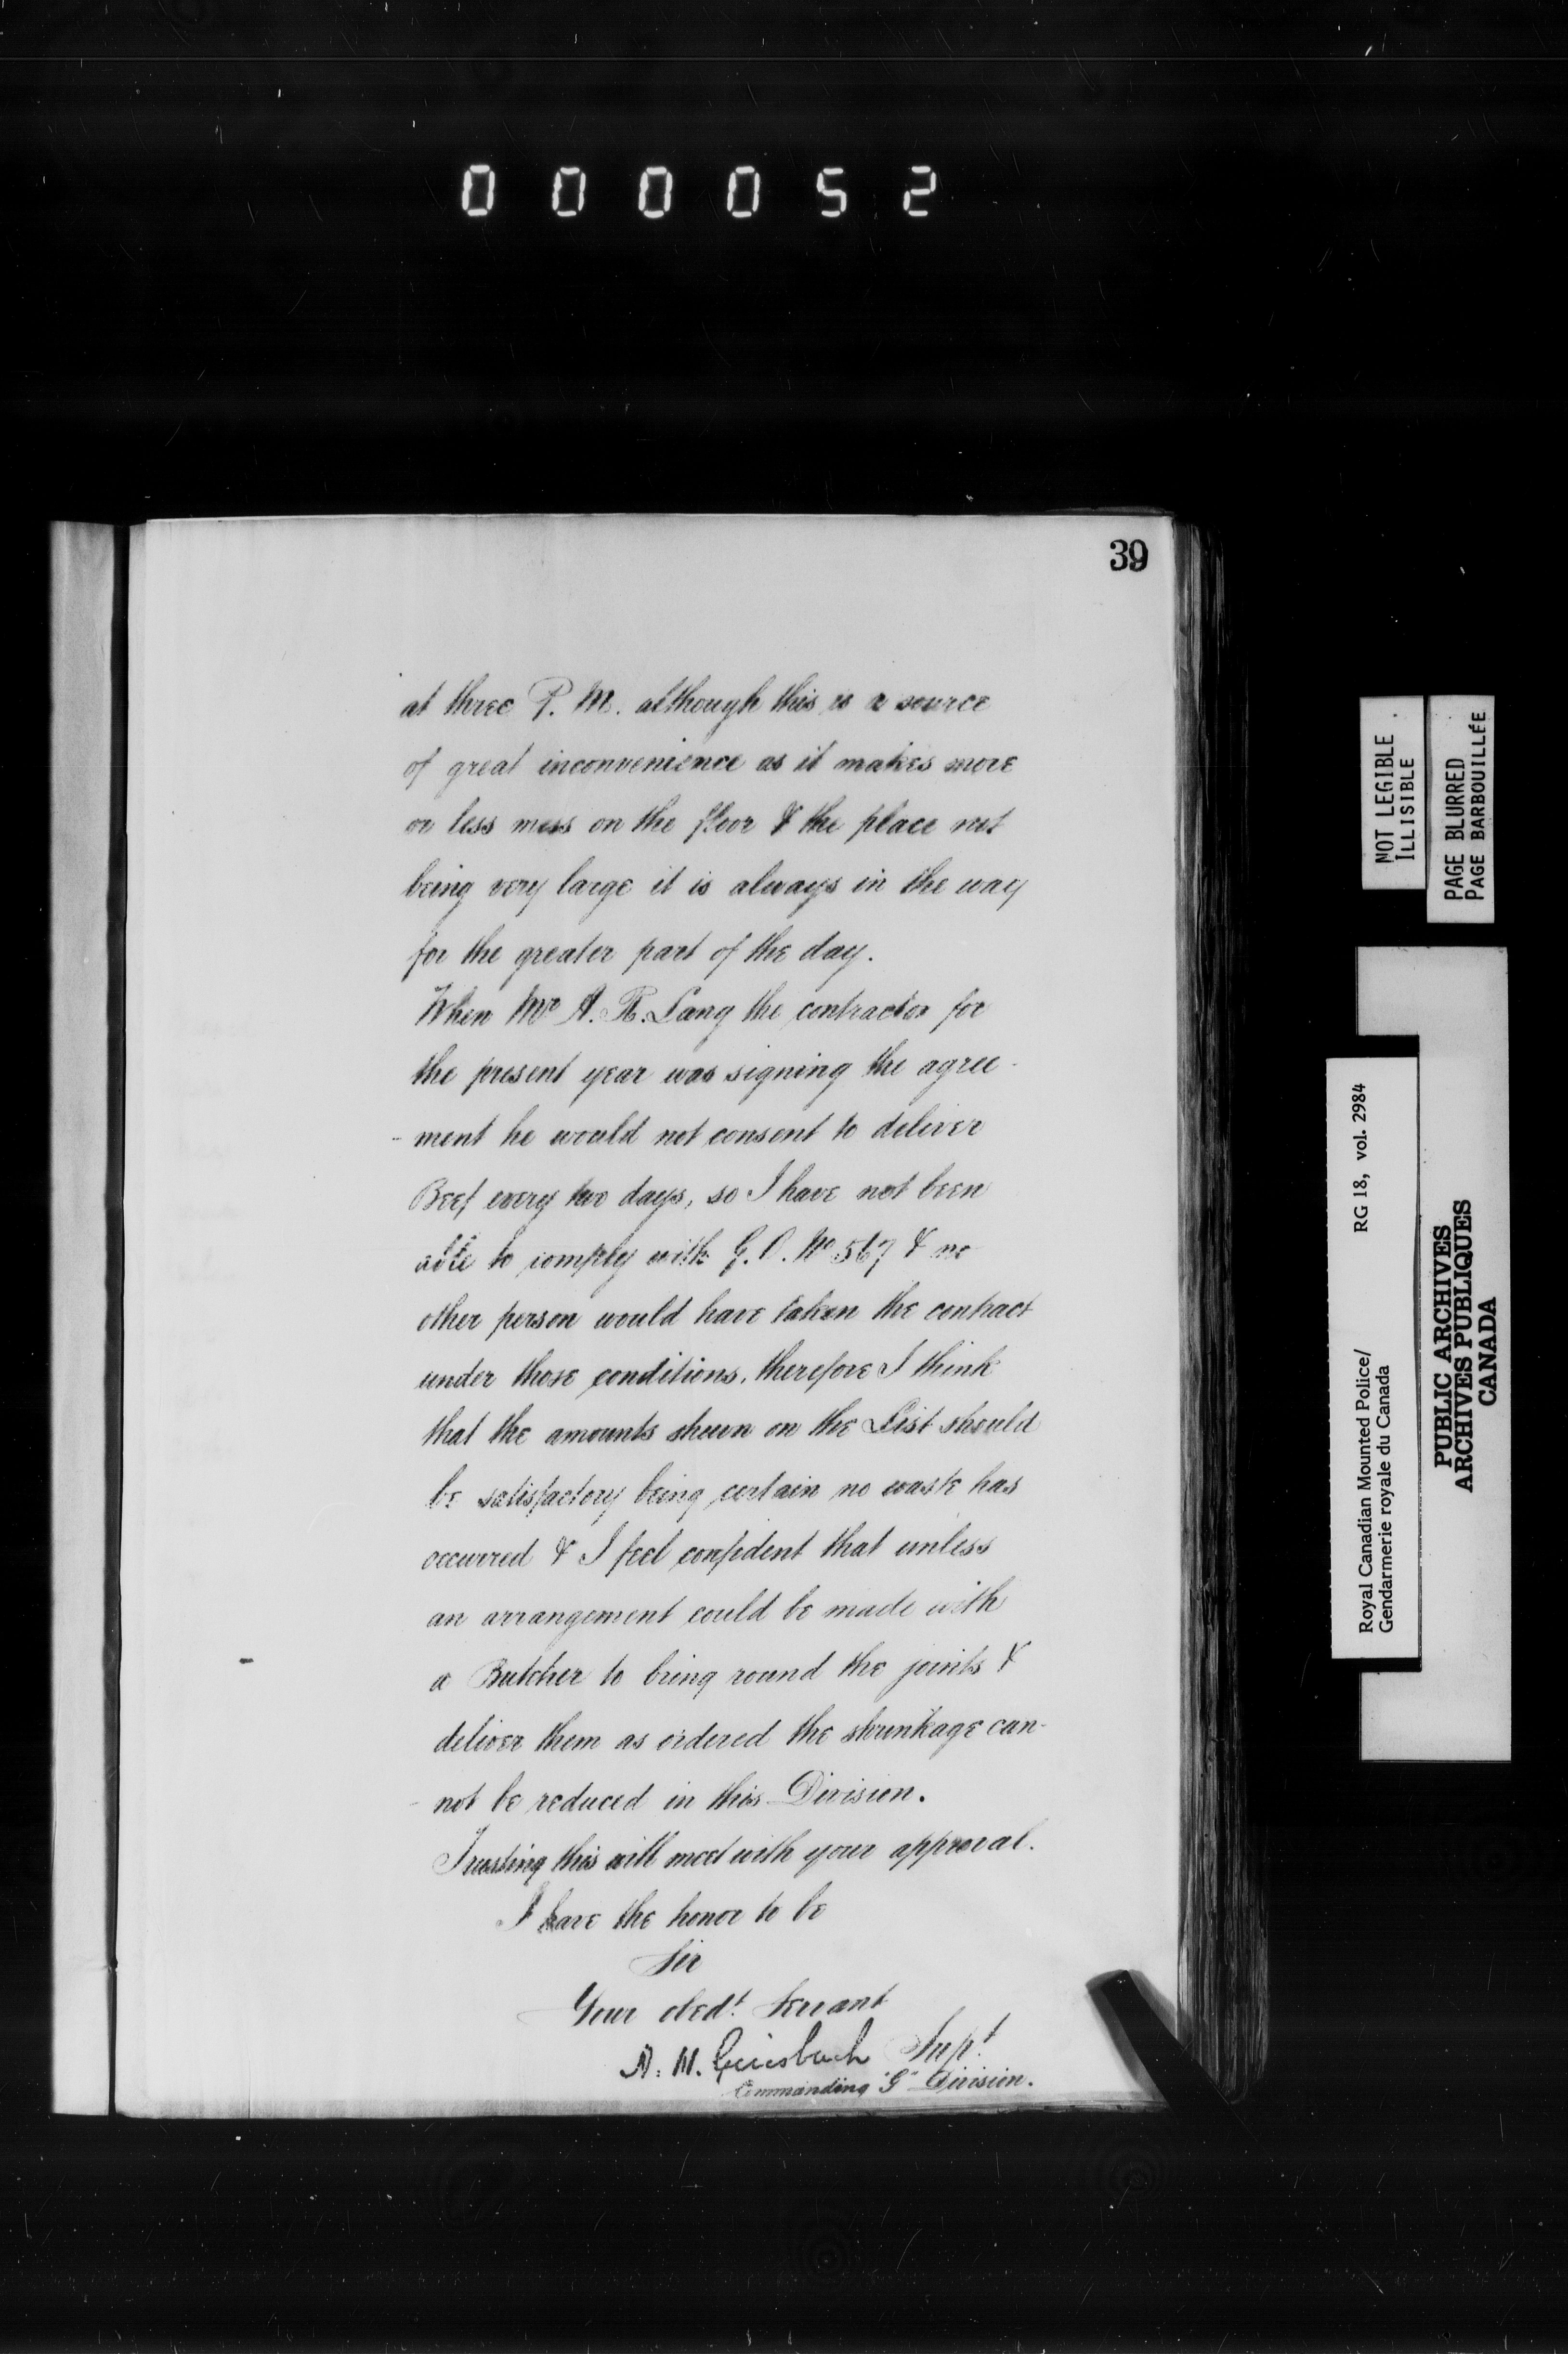 000052
39
at three P. M. although this is a source
of great inconvenience as it makes more
or less mess on the floor & the place not
being very large it is always in the way
for the greater part of the day.
When Mr A. R. Lang the contractor for
the present year was signing the agree-
-ment he would not consent to deliver
Beef every two days, so I have not been
able to comply with G. O. No 567 & no
other person would have taken the contract
under those conditions, therefore I think
that the amounts shewn on the List should
be satisfactory being certain no waste has
occurred & I feel confident that unless
an arrangement could be made with
a Butcher to bring round the joints &
deliver them as ordered the shrinkage can-
-not be reduced in this Division.
Trusting this will meet with your approval.
I have the honor to be
Sir
Your obedt. Servant
A. H. Griesbach Supt.
Commanding "G" Division.
NOT LEGIBLE
ILLISIBLE
PAGE BLURRED
PAGE BARBOUILLÉE
Royal Canadian Mounted Police/
Gendarmerie royale du Canada
RG 18, vol. 2984
PUBLIC ARCHIVES
ARCHIVES PUBLIQUES
CANADA